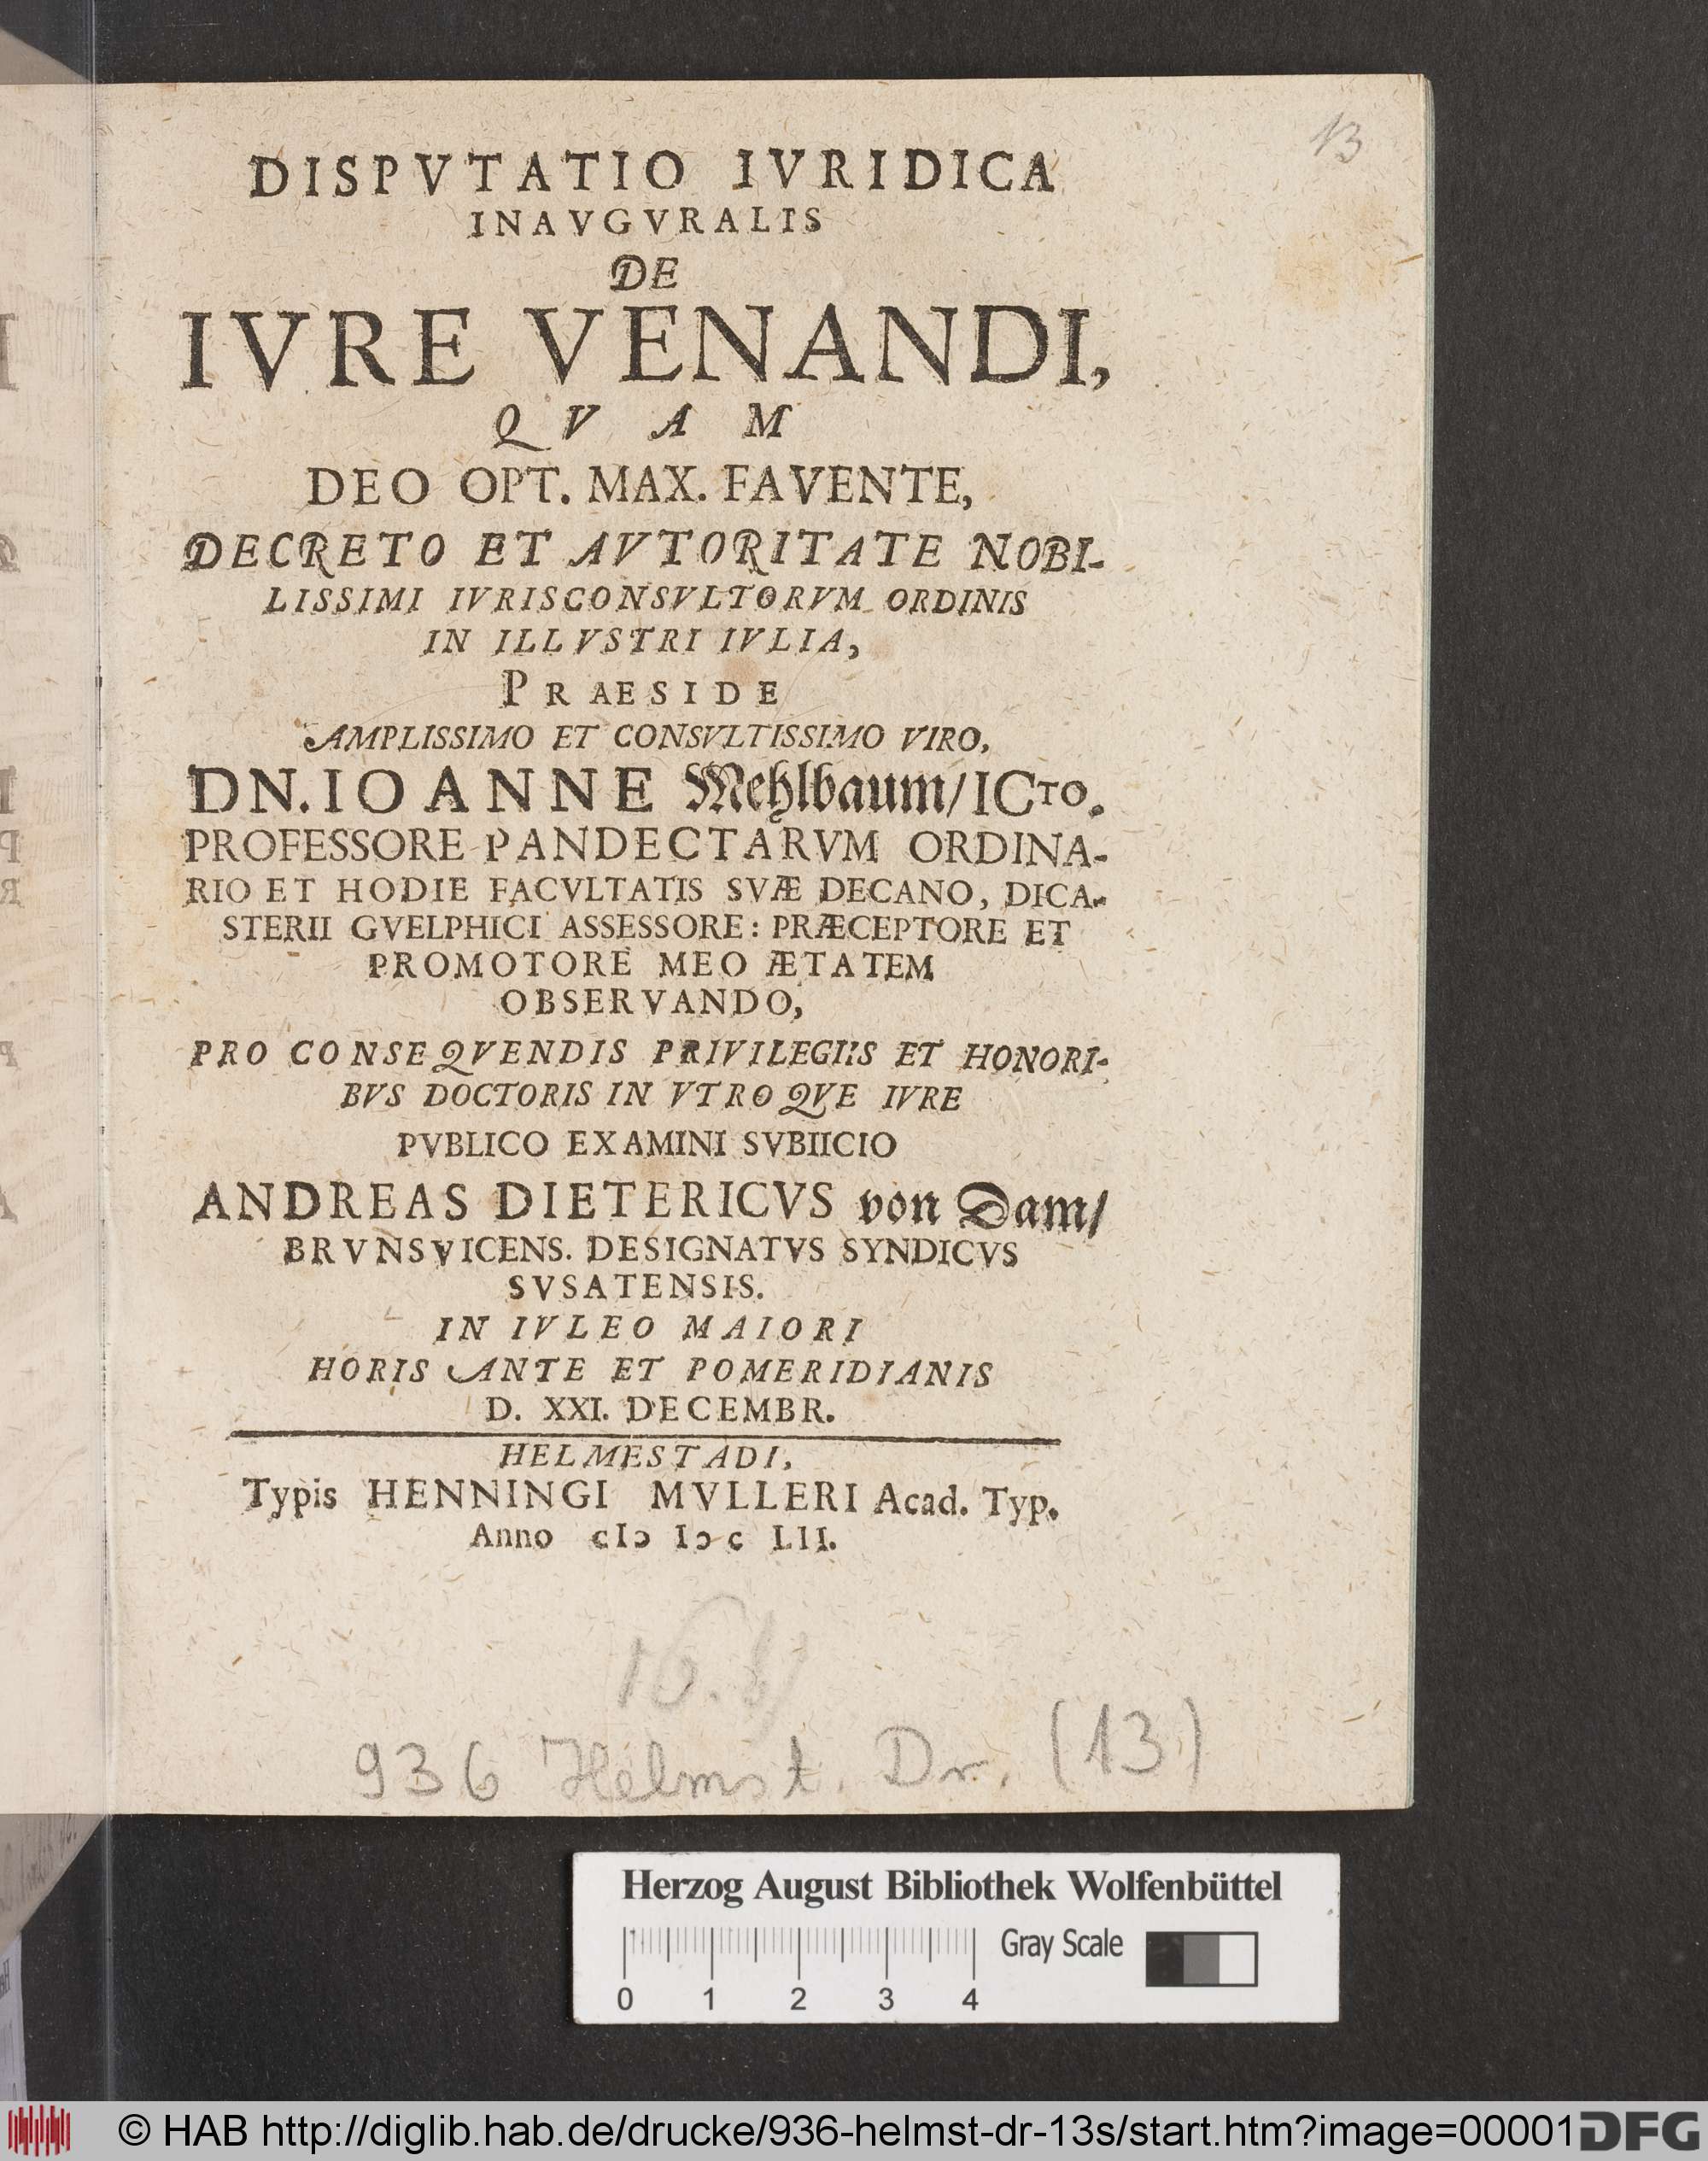 13
DISPVTATIO IVRIDICA
INAVGVRALIS
DE
IVRE VENANDI,
QVAM
DEO OPT. MAX. FAVENTE,
DECRETO ET AVTORITATE NOBI-
LISSIMI IVRISCONSVLTORVM ORDINIS
IN ILLVSTRI IVLIA,
PRAESIDE
AMPLISSIMO ET CONSVLTISSIMO VIRO,
DN. IOANNE Mehlbaum/ ICTO.
PROFESSORE PANDECTARVM ORDINA-
RIO ET HODIE FACVLTATIS SVÆ DECANO, DICA-
STERII GVELPHICI ASSESSORE: PRÆCEPTORE ET
PROMOTORE MEO ÆTATEM
OBSERVANDO,
PRO CONSEQVENDIS PRIVILEGIIS ET HONORI-
BVS DOCTORIS IN VTROQVE IVRE
PVBLICO EXAMINI SVBIICIO
ANDREAS DIETERICVS von Dam/
BRVNSVICENS. DESIGNATVS SYNDICVS
SVSATENSIS.
IN IVLEO MAIORI
HORIS ANTE ET POMERIDIANIS
D. XXI. DECEMBR.
HELMESTADI,
Typis HENNINGI MVLLERI Acad. Typ.
Anno cIɔ Iɔc LII.
936 Helmst. Dr. (13)
Herzog August Bibliothek Wolfenbüttel
Gray Scale
0 1 2 3 4
© HAB http://diglib.hab.de/drucke/936-helmst-dr-13s/start.htm?image=00001
DFG